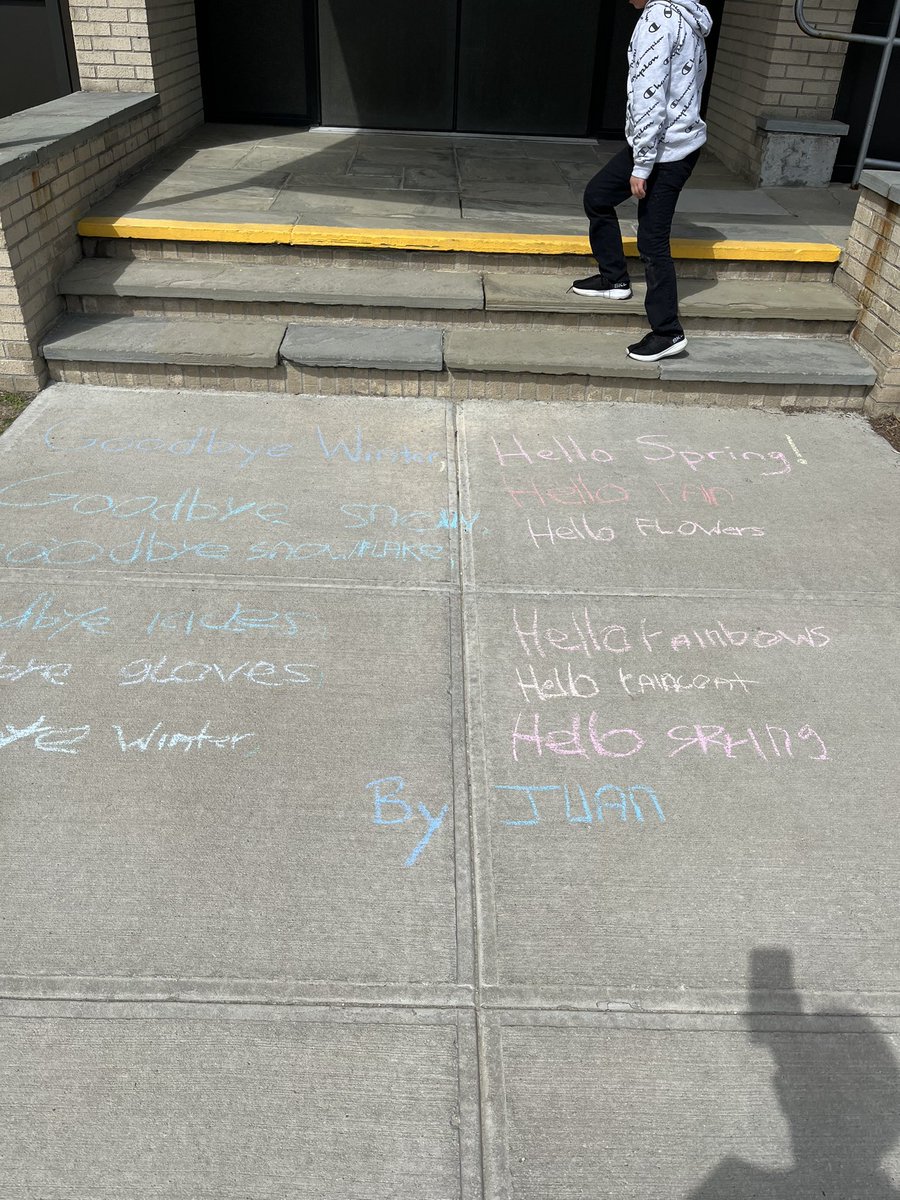 Champion
Goodbye Winter
Goodbye snow,
oodbye snowflake,
dbye
bye gloves
ye Winter,
Hello Spring!
Hello
Hello FLowers
Hello rainbows
Hello raincoat
Hello SPring
By JUAN